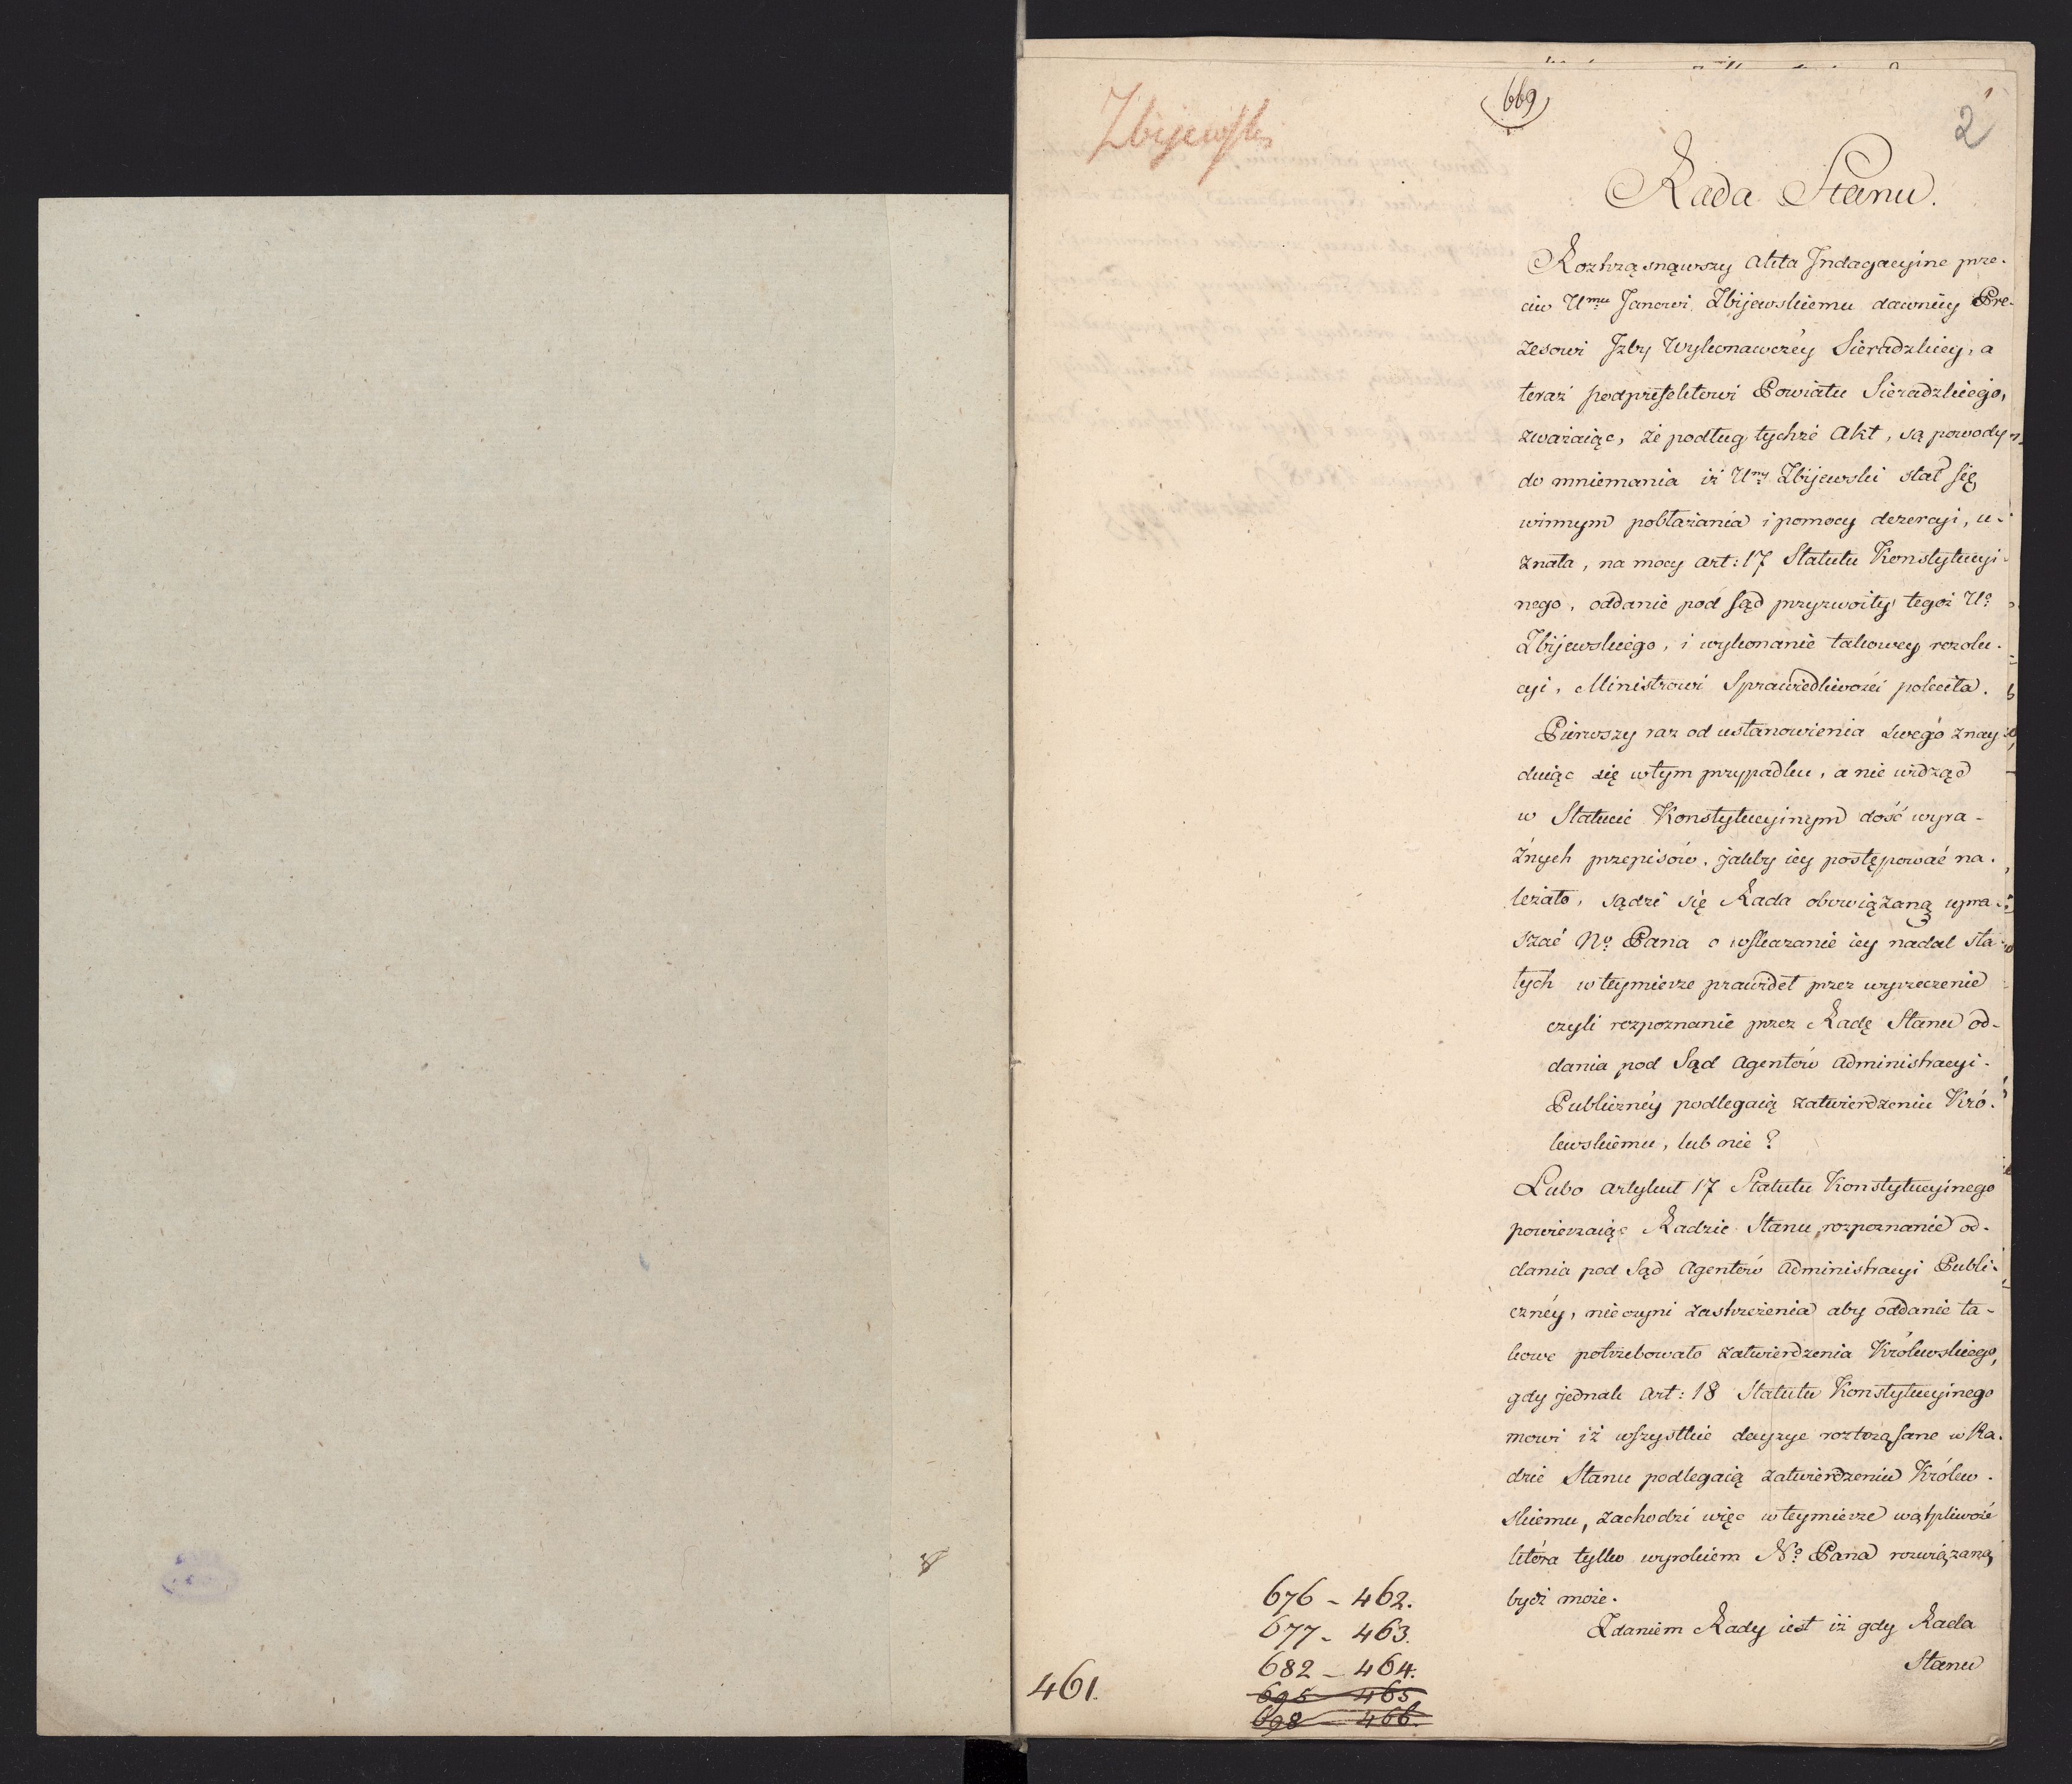 Zbijewski
669
2
Rada Stanu.
Roztrząsnąwszy Akta Indagacyine prze-
ciw Umu Janowi Zbijewskiemu dawniey Pre-
zesowi Izby Wykonawczéy Sieradzkiey, a
teraz podprefektowi Powiatu Sieradzkiego,
zważaiąc, że podług tychże Akt, są powody
do mniemania iż Uny Zbijewski stał się
winnym pobłażania i pomocy dezercyi, u-
znała, na mocy art: 17 Statutu Konstytucyi-
nego, oddanie pod sąd przyzwoity tegoż Uo
Zbijewskiego, i wykonanie takowey rezolu-
cyi, Ministrowi Sprawiedliwości poleciła.
Pierwszy raz od ustanowienia swego znay-
duiąc się w tym przypadku, a nie widząc
w Statucie Konstytucyinym dość wyra-
źnych przepisów, jakby iey postępować na-
leżało, sądzi się Rada obowiązaną upra-
szać No Pana o wskazanie iey nadal sta-
łych w teymierze prawideł przez wyrzeczenie
czyli rozpoznanie przez Radę Stanu od-
dania pod Sąd Agentów Administracyi
Publiczney podlegaią zatwierdzeniu Kró-
lewskiemu, lub nie?
Lubo artykuł 17 Statutu Konstytucyinego
powierzaiąc Radzie Stanu rozpoznanie od-
dania pod Sąd Agentów Administracyi Publi-
czney, nieczyni zastrzeżenia aby oddanie ta-
kowe potrzebowało zatwierdzenia Królewskiego,
gdy jednak Art: 18 Statutu Konstytucyinego
mowi iż wszystkie decyzye roztrząsane w Ra-
dzie Stanu podlegaią zatwierdzeniu Królew-
skiemu, zachodzi więc w teymierze wątpliwość
która tylko wyrokiem No Pana rozwiązaną
bydź może.
Zdaniem Rady iest iż gdy Rada
Stanu
676 - 462.
677 - 463.
682 - 464.
695 - 465
698 - 466.
461.